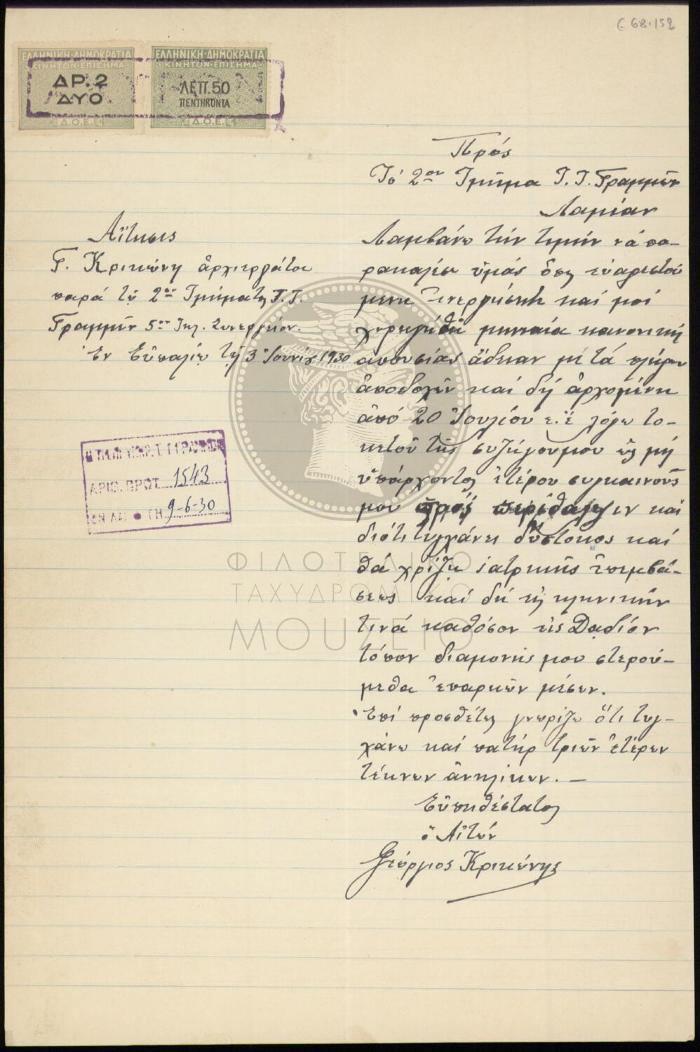 C 68.152
ΕΛΛΗΝΙΚΗ·ΔΗΜΟΚΡΑΤΙΑ
ΚΙΝΗΤΟΝ-ΕΠΙΣΗΜΑ
ΔΡ.2
ΔΥΟ
Δ.Ο.Ε.
ΕΛΛΗΝΙΚΗ·ΔΗΜΟΚΡΑΤΙΑ
ΚΙΝΗΤΟΝ-ΕΠΙΣΗΜΑ
ΛΕΠ.50
ΠΕΝΤΗΚΟΝΤΑ
Δ.Ο.Ε.
Πρός
Τό 2ον Τμῆμα Τ.Τ. Γραμμῶν
Λαμίαν
Αἴτησις
Γ. Κρικώνη ἀρχιεργάτου
παρά τῷ 2ῳ Τμήματι Τ.Τ.
Γραμμῶν 5ον Τηλ. Συνεργεῖον.
Ἐν Εὐπαλίῳ τῇ 3 Ἰουνίου 1930
ΑΡΙΘ. ΠΡΩΤ. 1543
ΕΝ ΛΑΜ ΤΗ 9-6-30
Λαμβάνω τήν τιμήν νά πα-
ρακαλέσω ὑμάς ὅπως εὐαρεστού
μενοι ἐνεργήσητε καί μοί
χορηγηθῇ μηνιαία κανονική
ἀπουσίας ἄδεια μέ τά πλήρη
ἀποδοχῶν καί δή ἀρχομένη
ἀπό 20 Ἰουλίου ἐ.ἔ λόγω το-
κετοῦ τῆς συζύγου μου ὡς μή
ὑπάρχοντος ἑτέρου συγγενοῦς
μου πρός περίθαλψιν καί
διότι τυγχάνει δύστοκος καί
θά χρήζει ἰατρικῆς ἐπεμβά-
σεως καί δή εἰς κλινικήν
τινά καθόσον εἰς Δαδίον
τόπον διαμονῆς μου στερού-
μεθα ἐπαρκῶν μέσων.
Ἐπί προσθέτως γνωρίζω ὅτι τυγ-
χάνω καί πατήρ τριῶν ἑτέρων
τέκνων ἀνηλίκων. —
Εὐπειθέστατος
ὁ Αἰτῶν
Γεώργιος Κρικώνης
ΦΙΛΟΤΕΛΙΚΟ
ΤΑΧΥΔΡΟΜΙΚΟ
ΜΟΥΣΕΙΟ